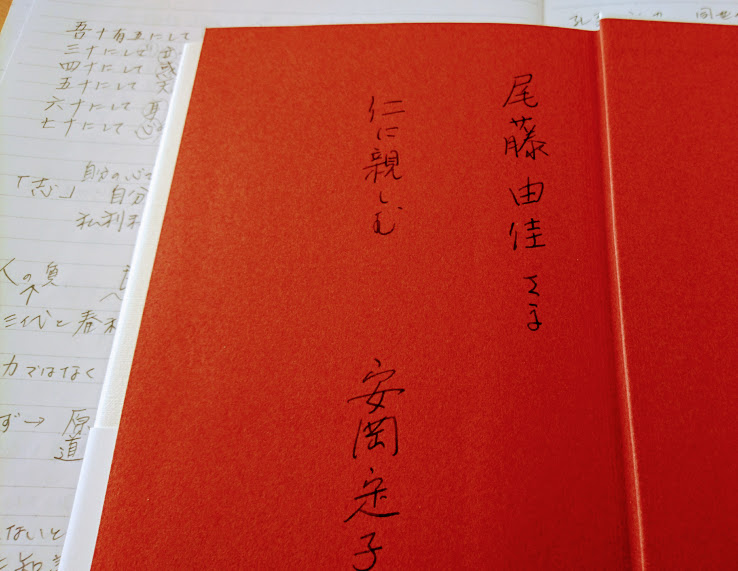 尾藤由佳さま
仁に親しむ
安岡定子
吾十有五にして
三十にして
四十にして
五十にして
六十にして
七十にして
「志」 自分の心
自分
私利
人の
三代と春秋
力ではなく
ず→ 原
道
ないと